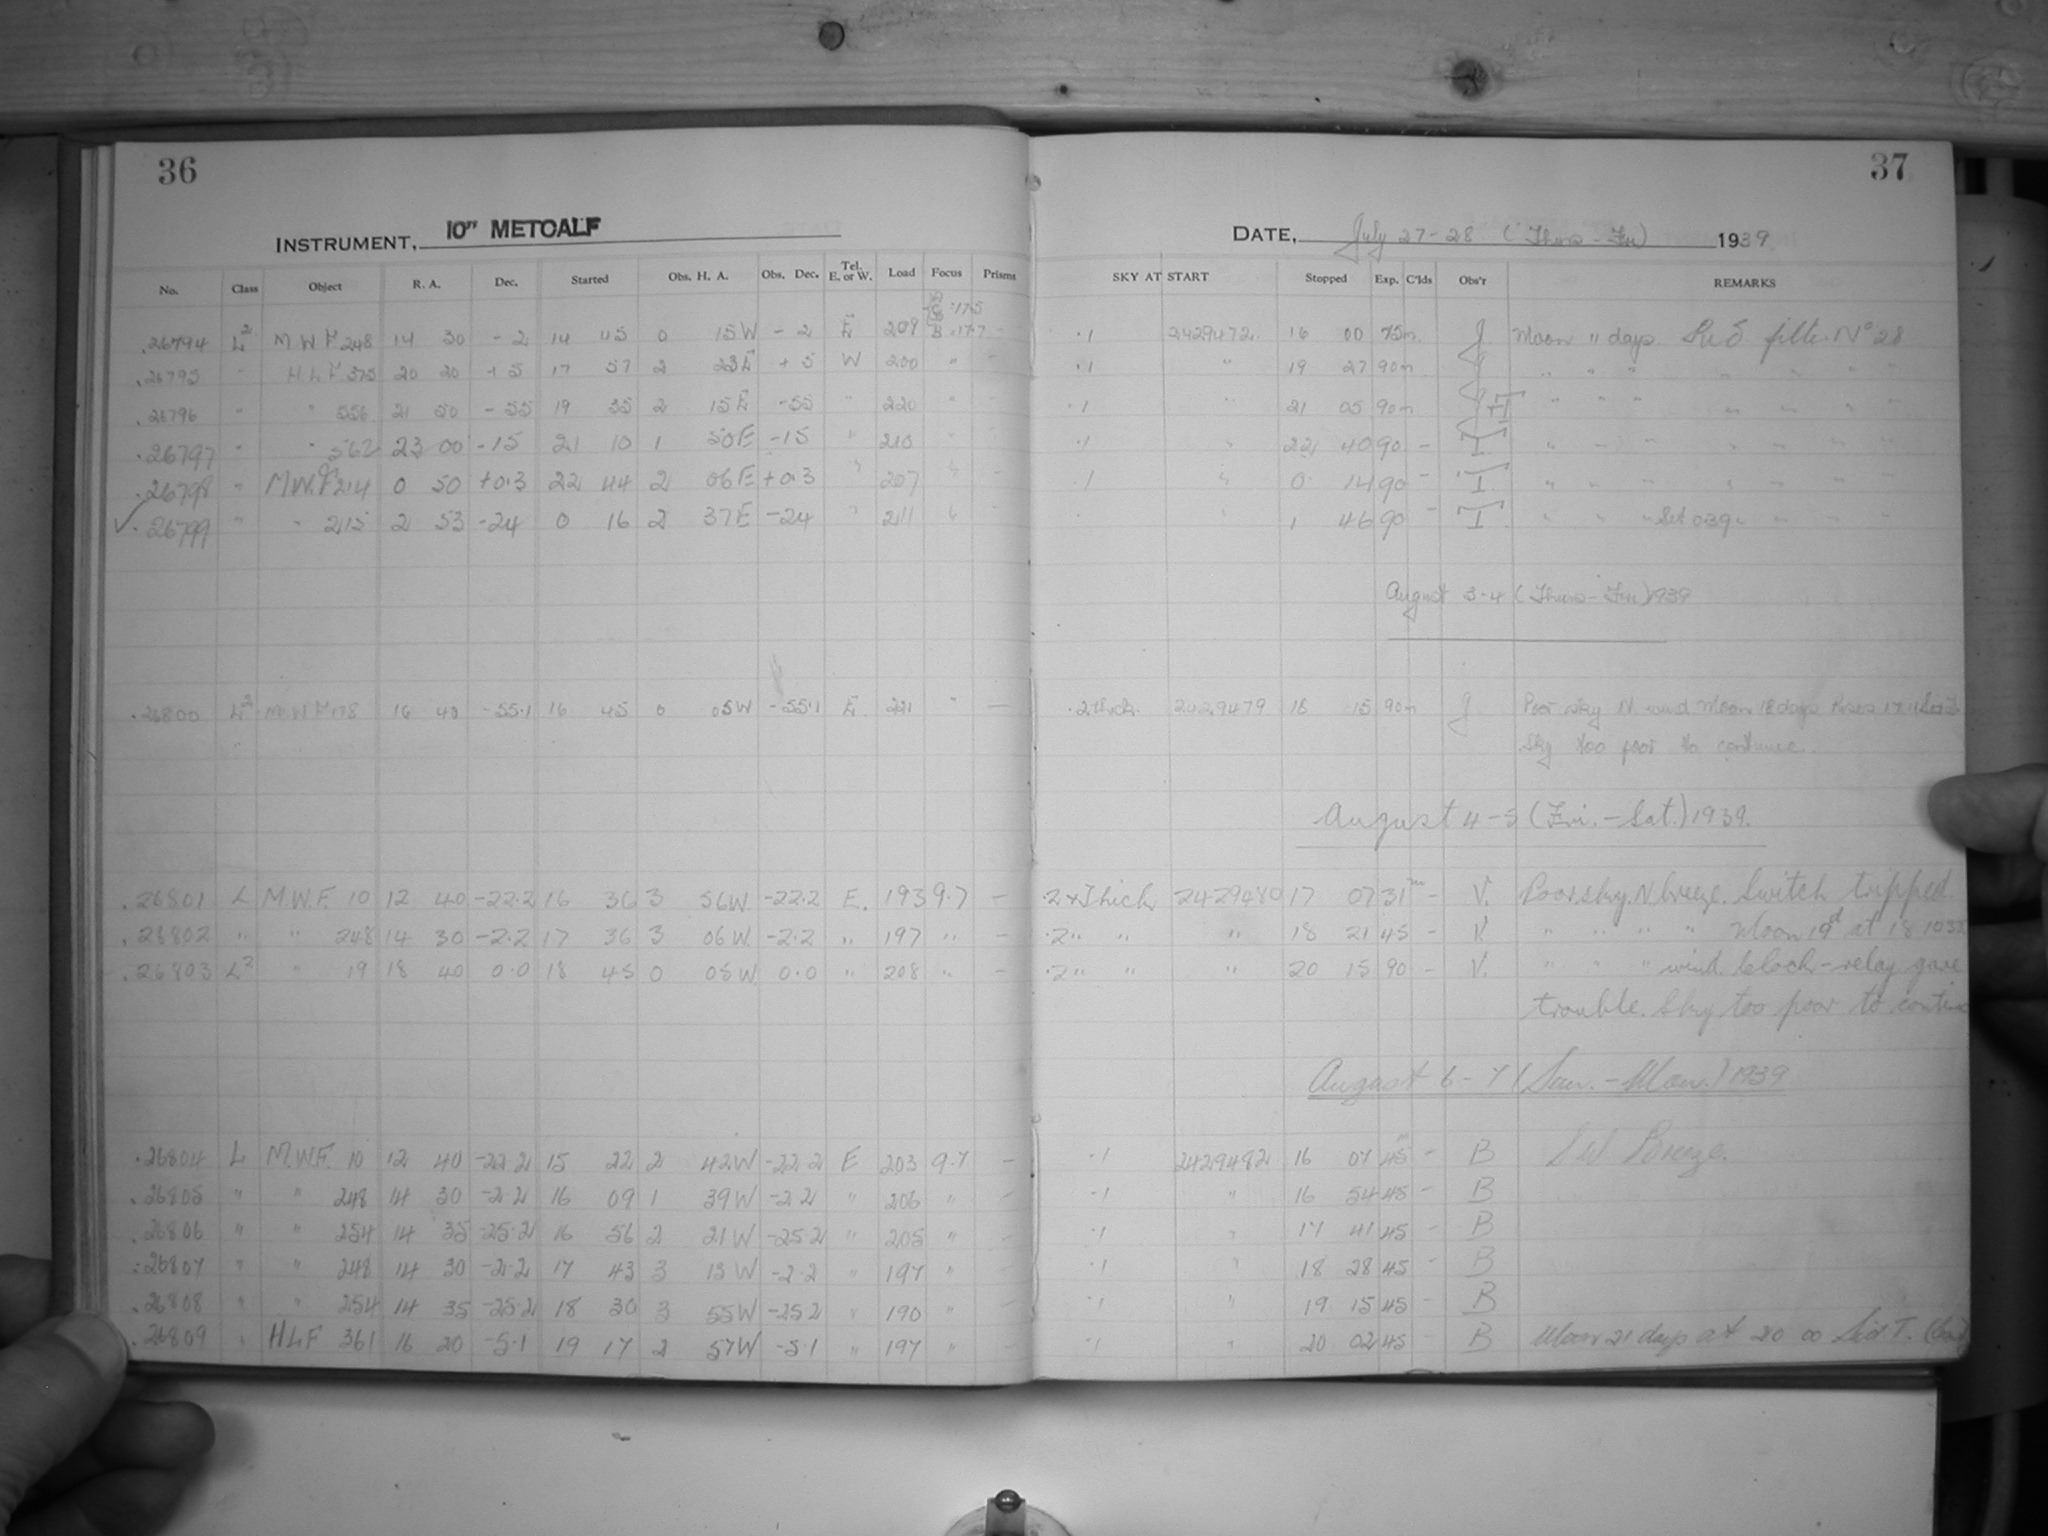 36
37
INSTRUMENT, 10" METCALF
DATE, July 27-28 (Thurs - Fri) 1939
No. Class Object R. A. Dec. Started Obs. H. A. Obs. Dec. Tel. E. or W. Load Focus Prisms SKY AT START Stopped Exp. C'lds Obs'r REMARKS
26794 L2 M W F 248 14 30 - 2 14 45 0 15W - 2 E 209 .1 2429472 16 00 75m J Moon 11 days filter No 28
26795 " H L F 375 20 20 + 5 17 57 2 23E + 5 W 200 " - .1 " 19 27 90m J " " " " " " "
26796 " " 556 21 50 - 55 19 35 2 15E -55 " 220 " - .1 " 21 05 90m J+T " " " " " " "
26797 " " 562 23 00 -15 21 10 1 50E -15 " 210 " - .1 " 22 40 90 - T " " " " " " "
26798 " M.W.F 214 0 50 +0.3 22 44 2 06E +0.3 " 207 " - .1 " 0 14 90 - T " " " " " " "
26799 " " 215 2 53 -24 0 16 2 37E -24 " 211 " - " 1 46 90 - T " " "
August 3-4 (Thurs - Fri) 1939
26800 L2 M W F 178 16 40 -55.1 16 45 0 05W -55.1 E. 221 " - .2 thick 2429479 18 15 90m J Poor sky N wind Moon 18 days
Sky too poor to continue.
August 4-5 (Fri. - Sat.) 1939.
26801 L M.W.F. 10 12 40 -22.2 16 36 3 56W. -22.2 E. 193 9.7 - .2 + Thick 2429480 17 07 31m - V. Poor sky. N. breeze. Switch tripped.
26802 " " 248 14 30 -2.2 17 36 3 06W. -2.2 " 197 " - .2 " " " 18 21 45 - V " " " " Moon 19d at 18
26803 L2 " 19 18 40 0.0 18 45 0 05W. 0.0 " 208 " - .2 " " " 20 15 90 - V. " " " wind. Clock-relay gave
trouble. Sky too poor to continue
August 6-7 (Sun. - Mon.) 1939
26804 L M.W.F. 10 12 40 -22.2 15 22 2 42W -22.2 E 203 9.7 - .1 2429482 16 07 45m - B SW Breeze.
26805 " " 248 14 30 -2.2 16 09 1 39W -2.2 " 206 " - .1 " 16 54 45 - B
26806 " " 254 14 35 -25.2 16 56 2 21W -25.2 " 205 " - .1 " 17 41 45 - B
26807 " " 248 14 30 -2.2 17 43 3 13W -2.2 " 197 " - .1 " 18 28 45 - B
26808 " " 254 14 35 -25.2 18 30 3 55W -25.2 " 190 " - .1 " 19 15 45 - B
26809 " H.L.F 361 16 20 -5.1 19 17 2 57W -5.1 " 197 " - .1 " 20 02 45 - B Moon 21 days at 20 00 Sid T.